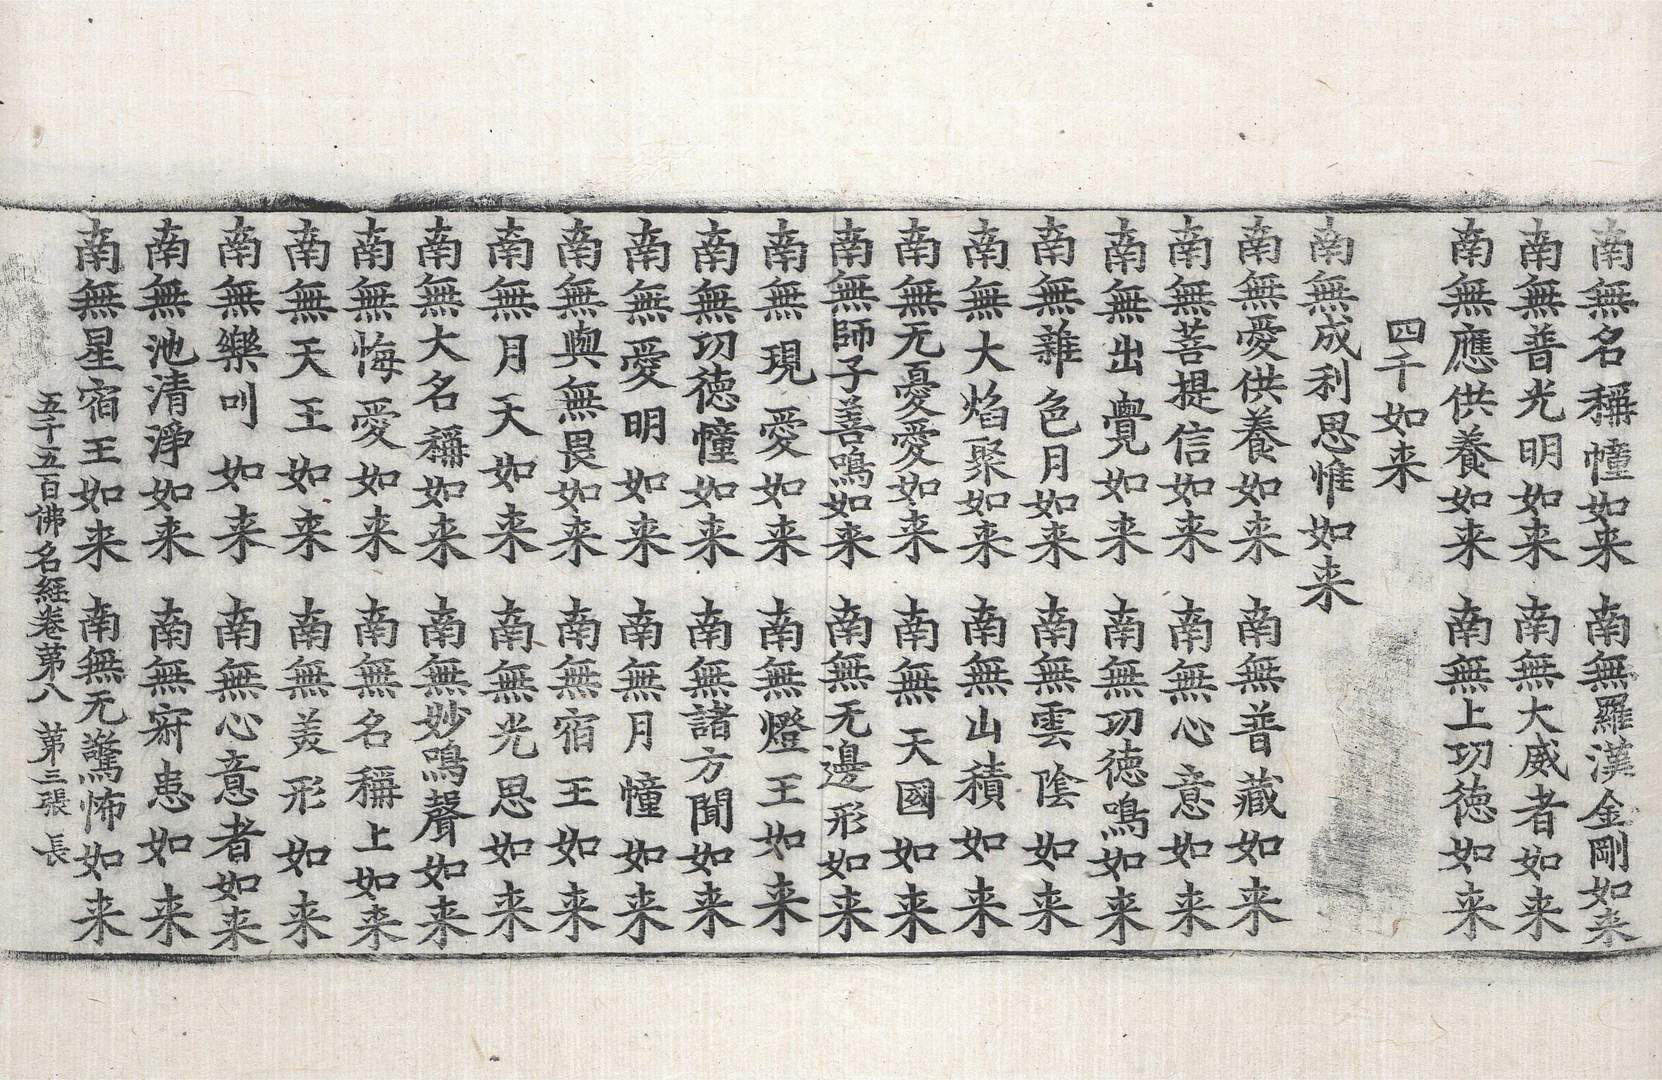 南無名稱幢如来　南無羅漢金剛如来
南無普光明如来　南無大威者如来
南無應供養如来　南無上功德如来
四千如来
南無成利思惟如来
南無愛供養如来　南無普藏如来
南無菩提信如来　南無心意如来
南無出覺如来　南無功德鳴如来
南無雜色月如来　南無雲陰如来
南無大焰聚如来　南無山積如来
南無无憂愛如来　南無天國如来
南無師子善鳴如来　南無无邊形如来
南無現愛如来　南無燈王如来
南無功德幢如来　南無諸方聞如来
南無愛明如来　南無月幢如来
南無與無畏如来　南無宿王如来
南無月天如来　南無光思如来
南無大名稱如来　南無妙鳴聲如来
南無悔愛如来　南無名稱上如来
南無天王如来　南無羙形如来
南無樂吅如来　南無心意者如来
南無池清淨如来　南無㝛患如来
南無星宿王如来　南無无驚怖如来
五千五百佛名経卷苐八　苐三張　長